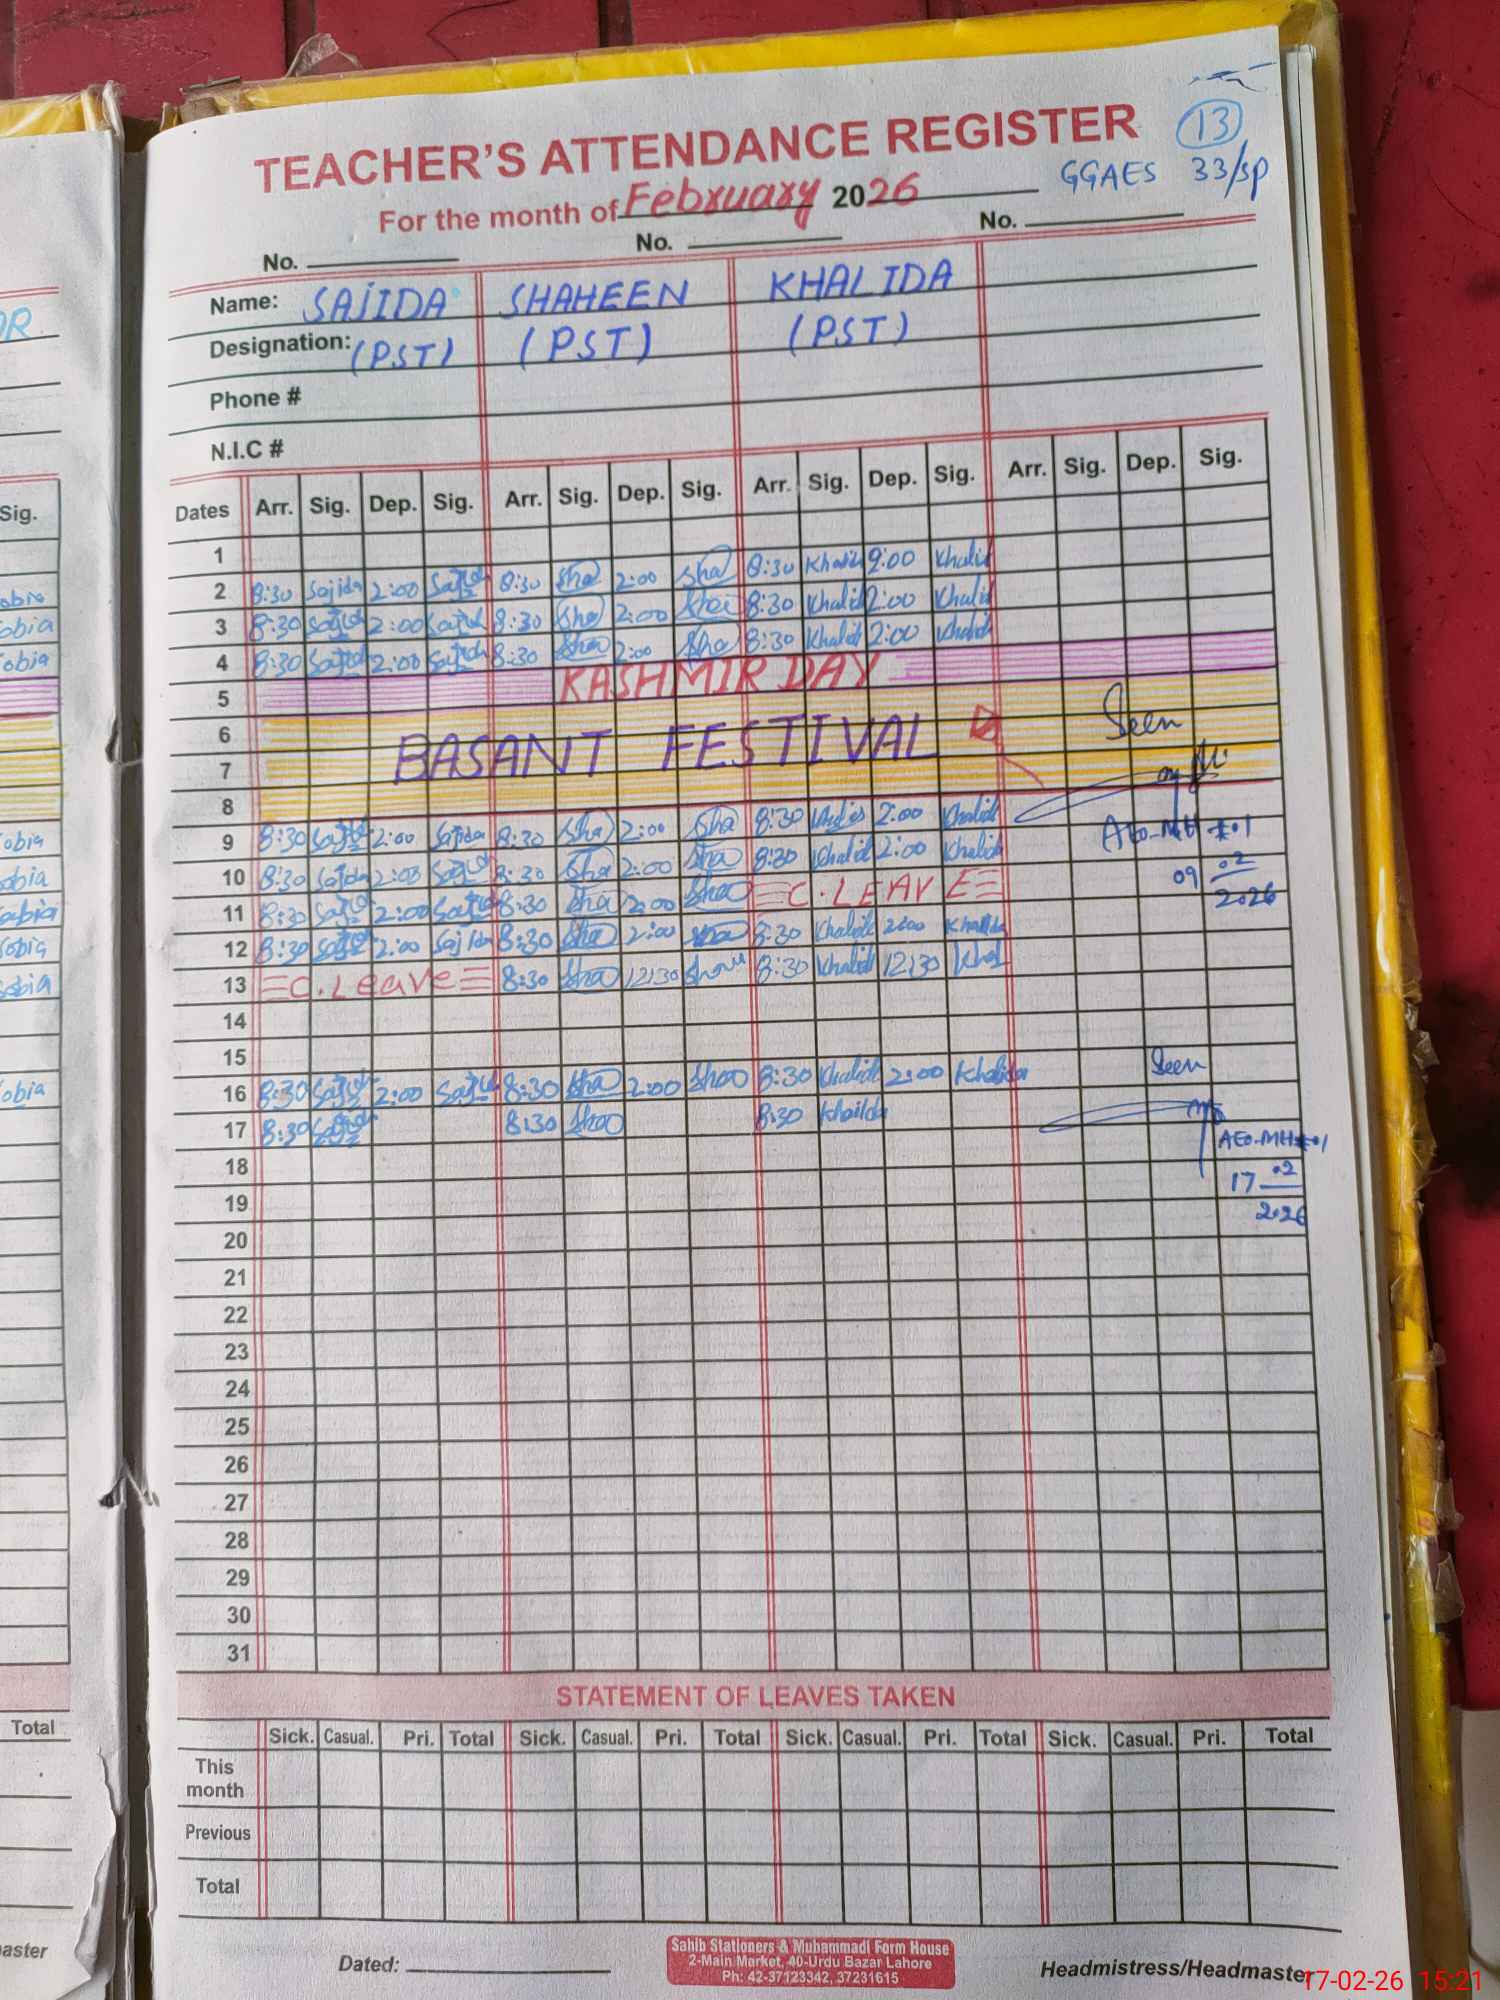 TEACHER'S ATTENDANCE REGISTER
13
GGAES 33/SP
For the month of February 2026
No. No. No.
Name: SAJIDA SHAHEEN KHALIDA
Designation: (PST) (PST) (PST)
Phone #
N.I.C #
Dates Arr. Sig. Dep. Sig. Arr. Sig. Dep. Sig. Arr. Sig. Dep. Sig. Arr. Sig. Dep. Sig.
1
2 8:30 Sajida 2:00 8:30 Sha 2:00 Sha 8:30 Khalid 2:00 Khalid
3 8:30 2:00 8:30 Sha 2:00 Sha 8:30 Khalid 2:00 Khalid
4 8:30 2:00 8:30 Sha 2:00 Sha 8:30 Khalid 2:00 Khalid
5 KASHMIR DAY
6 Seen
7 BASANT FESTIVAL
8
9 8:30 2:00 Sajida 8:30 Sha 2:00 Sha 8:30 2:00 Khalid AEO-MH #01
10 8:30 Sajida 2:00 8:30 Sha 2:00 Sha 8:30 Khalid 2:00 Khalid 09 02
11 8:30 2:00 8:30 Sha 2:00 Sha C. LEAVE 2026
12 8:30 2:00 Sajida 8:30 Sha 2:00 8:30 Khalid 2:00 Khalida
13 C. Leave 8:30 Sha 12:30 8:30 Khalid 12:30 Khal
14
15 Seen
16 8:30 2:00 8:30 Sha 2:00 8:30 Khalid 2:00 Khalida
17 8:30 8:30 8:30 Khailda AEO-MH #01
18 17 02
19 2026
20
21
22
23
24
25
26
27
28
29
30
31
STATEMENT OF LEAVES TAKEN
Sick. Casual. Pri. Total Sick. Casual. Pri. Total Sick. Casual. Pri. Total Sick. Casual. Pri. Total
This month
Previous
Total
Dated:
Sahib Stationers & Muhammadi Form House
2-Main Market, 40-Urdu Bazar Lahore
Ph: 42-37123342, 37231615
Headmistress/Headmaster
17-02-26 15:21
Sig.
Total